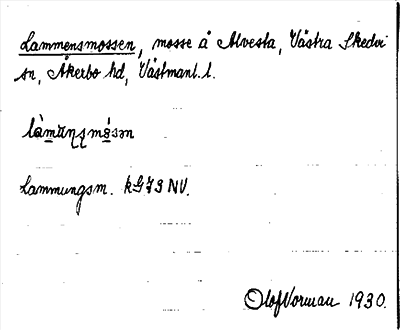 Lammensmossen, mosse å Alvesta, Västra Skedvi
sn, Åkerbo hd, Västmanl. l.
Lammungsm. kG79 NV.
Olof Norman 1930.